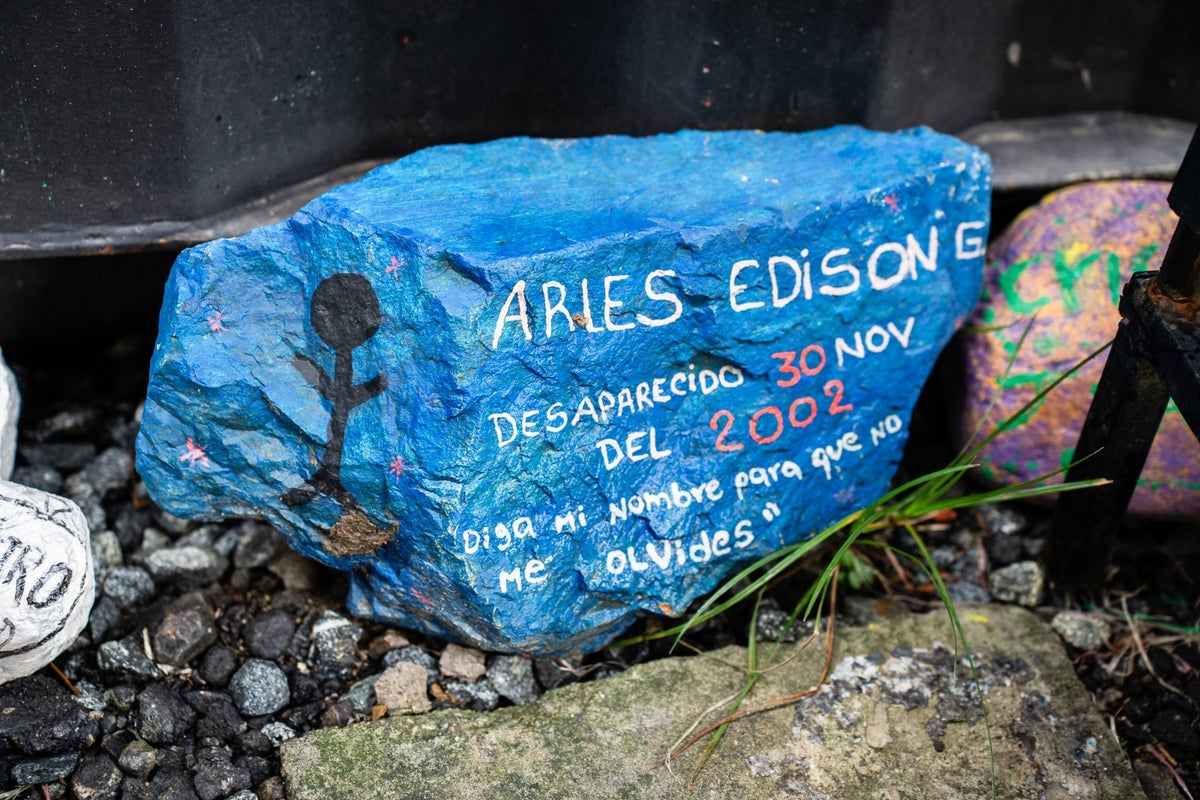 ARLES EDISON G.
DESAPARECIDO 30 NOV
DEL 2002
"Diga mi Nombre para que no
me olvides"
TRO